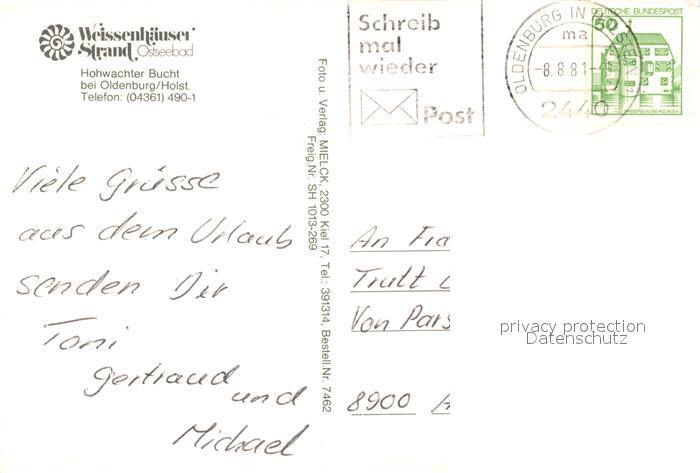 Weissenhäuser
Strand Ostseebad
Hohwachter Bucht
bei Oldenburg/Holst.
Telefon: (04361) 490-1
Viele Grüsse
aus dem Urlaub
senden Dir
Toni
Gertraud
und
Michael
Foto u. Verlag: MIELCK, 2300 Kiel 17, Tel.: 391314, Bestell.Nr. 7462
Freig.Nr. SH 1013-269
Schreib
mal
wieder
Post
OLDENBURG IN HOLSTEIN 2
ma
-8.8.81-
2440
DEUTSCHE BUNDESPOST
50
WASSERSCHLOSS INZLINGEN
An Fra
Trutt
Von Pars
8900
privacy protection
Datenschutz